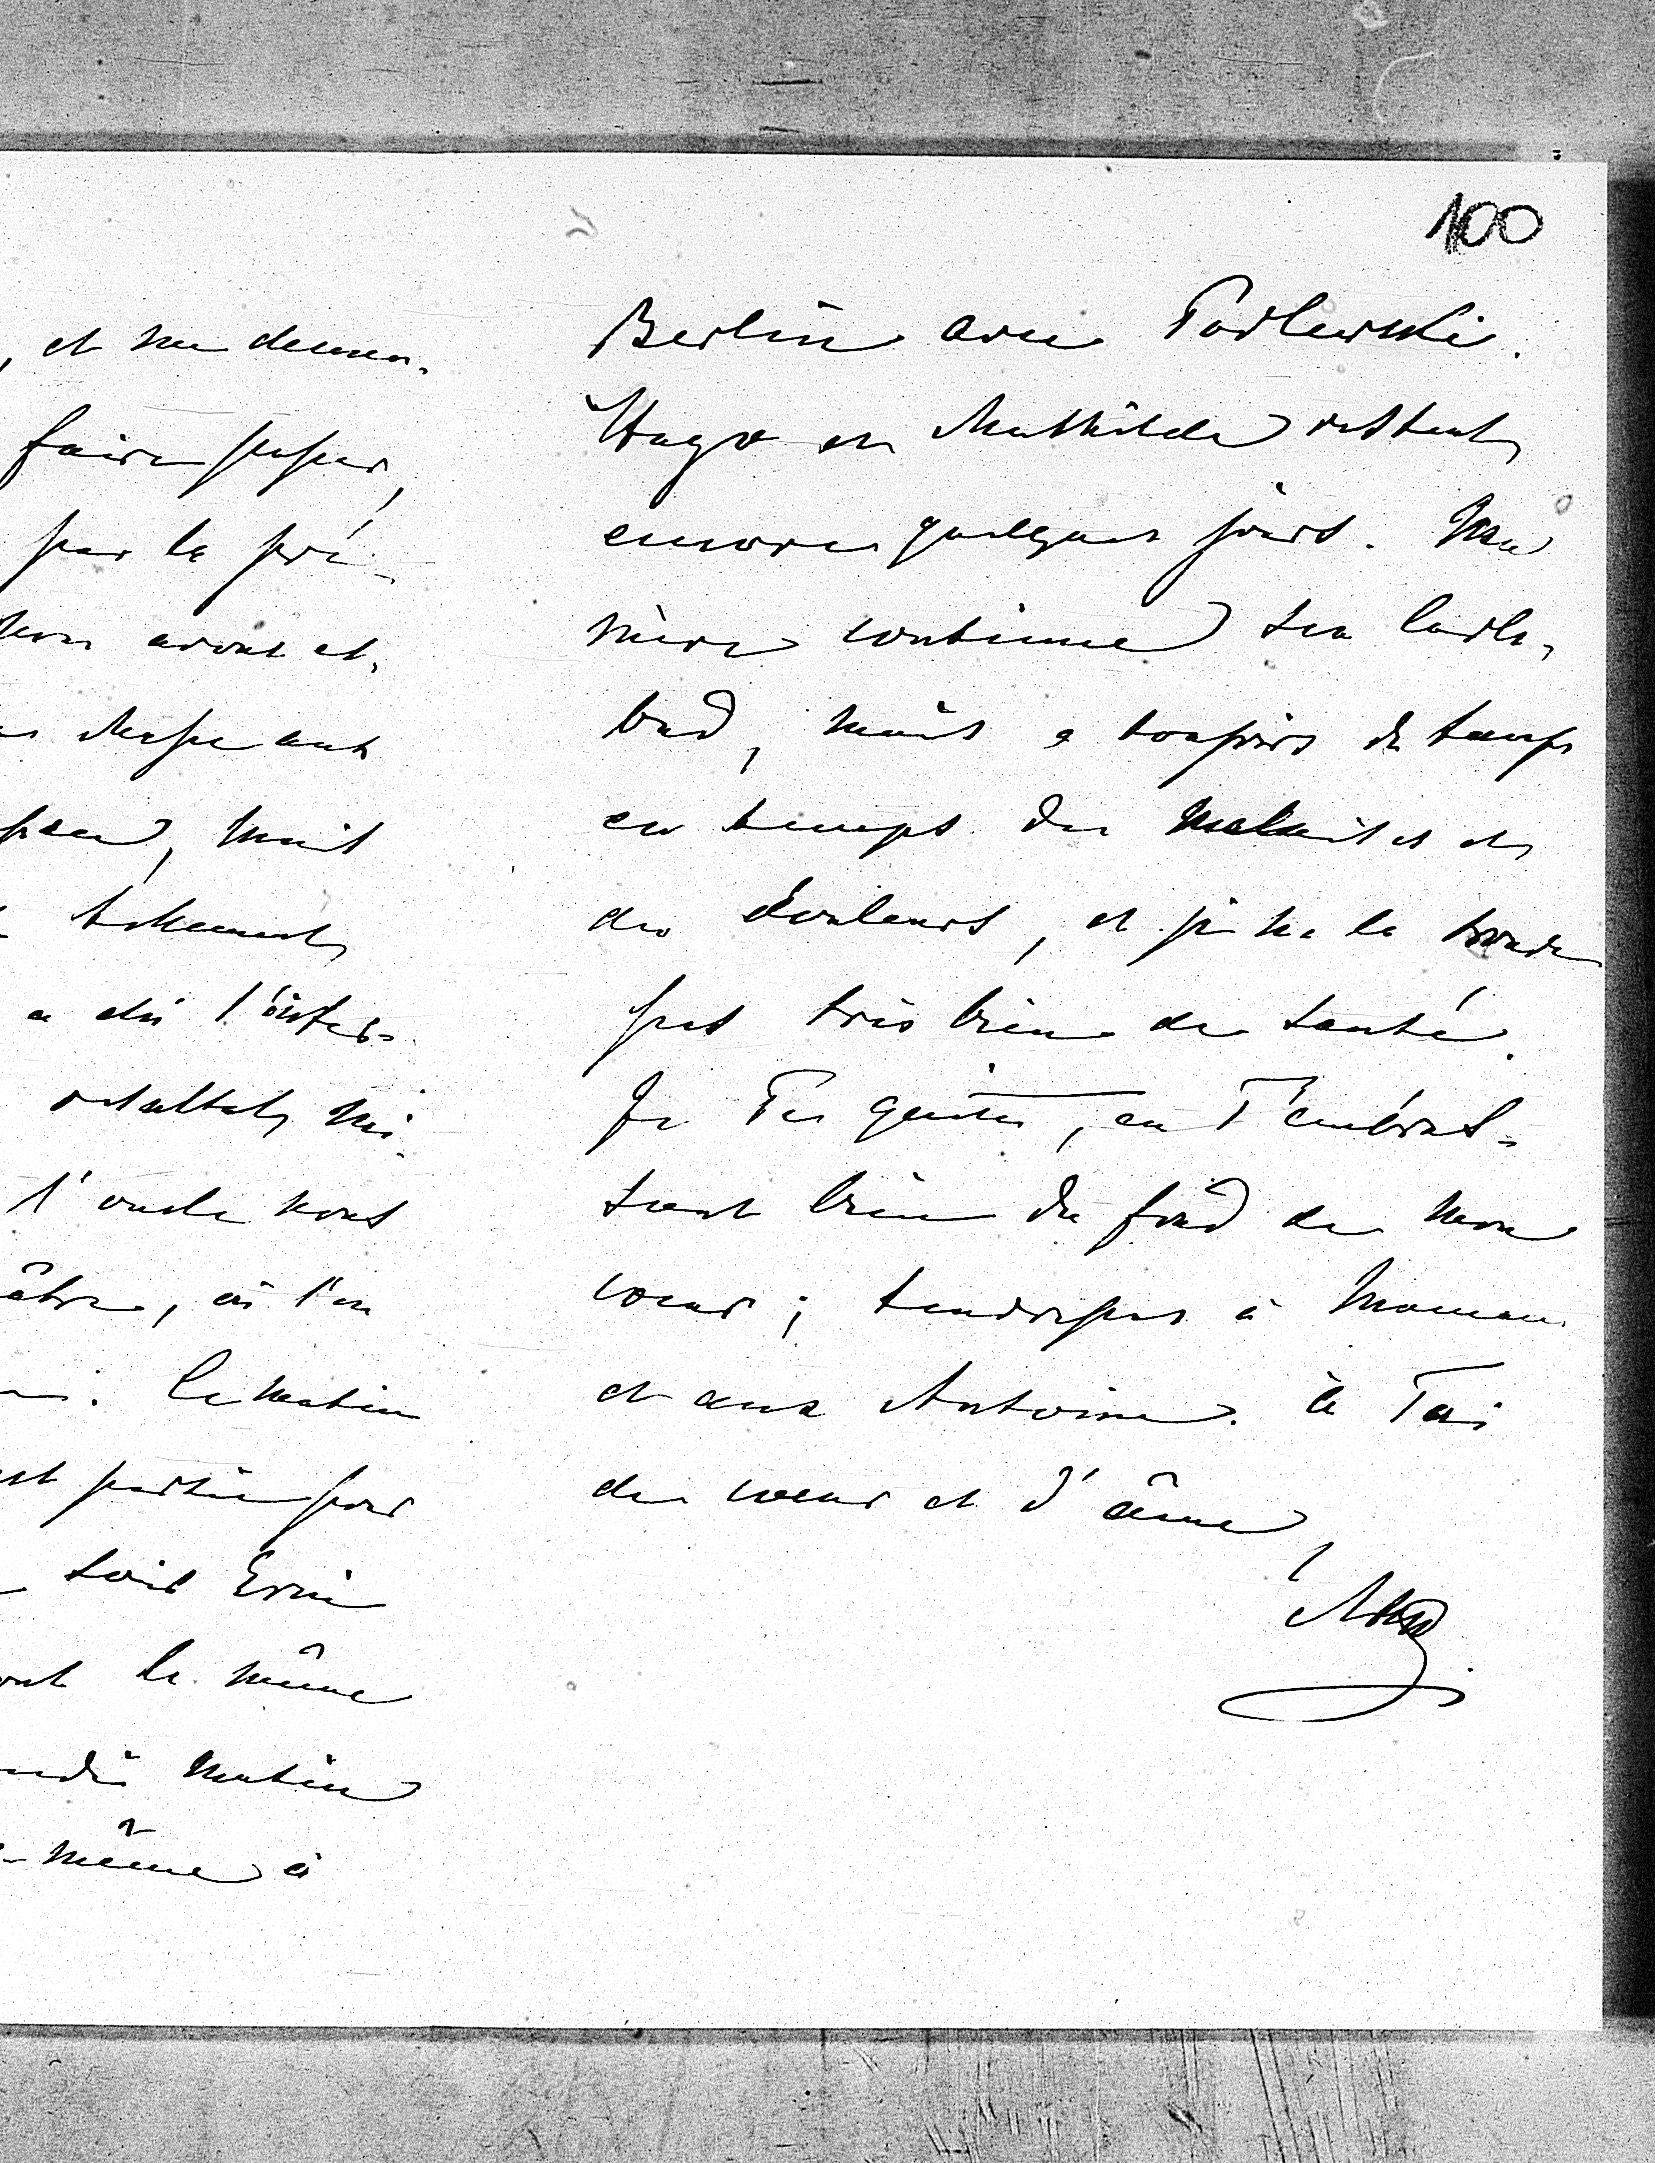 100
, et me deman-
faire passer,
par la pré-
nous avons et.
Messe aux
, mais
tellement
a dû l'inter-
resultat, mi-
l'oncle nous
âtre, où l'on
. Ce matin
est partie pour
soir Erni
ont le même
dredi matin
-même à
Berlin avec Podlewski.
Hugo et Mathilde restent
encore quelques jours. Ma
mère continue son Carls-
bad, mais a toujours de temps
en temps des malaises et
des douleurs, et je ne la trouve
pas très bien de santé.
Je Te quitte, en T'embras-
sant bien du fond de mon
coeur; tendresses à Maman
et aux Antoine. à Toi
de coeur et d'âme